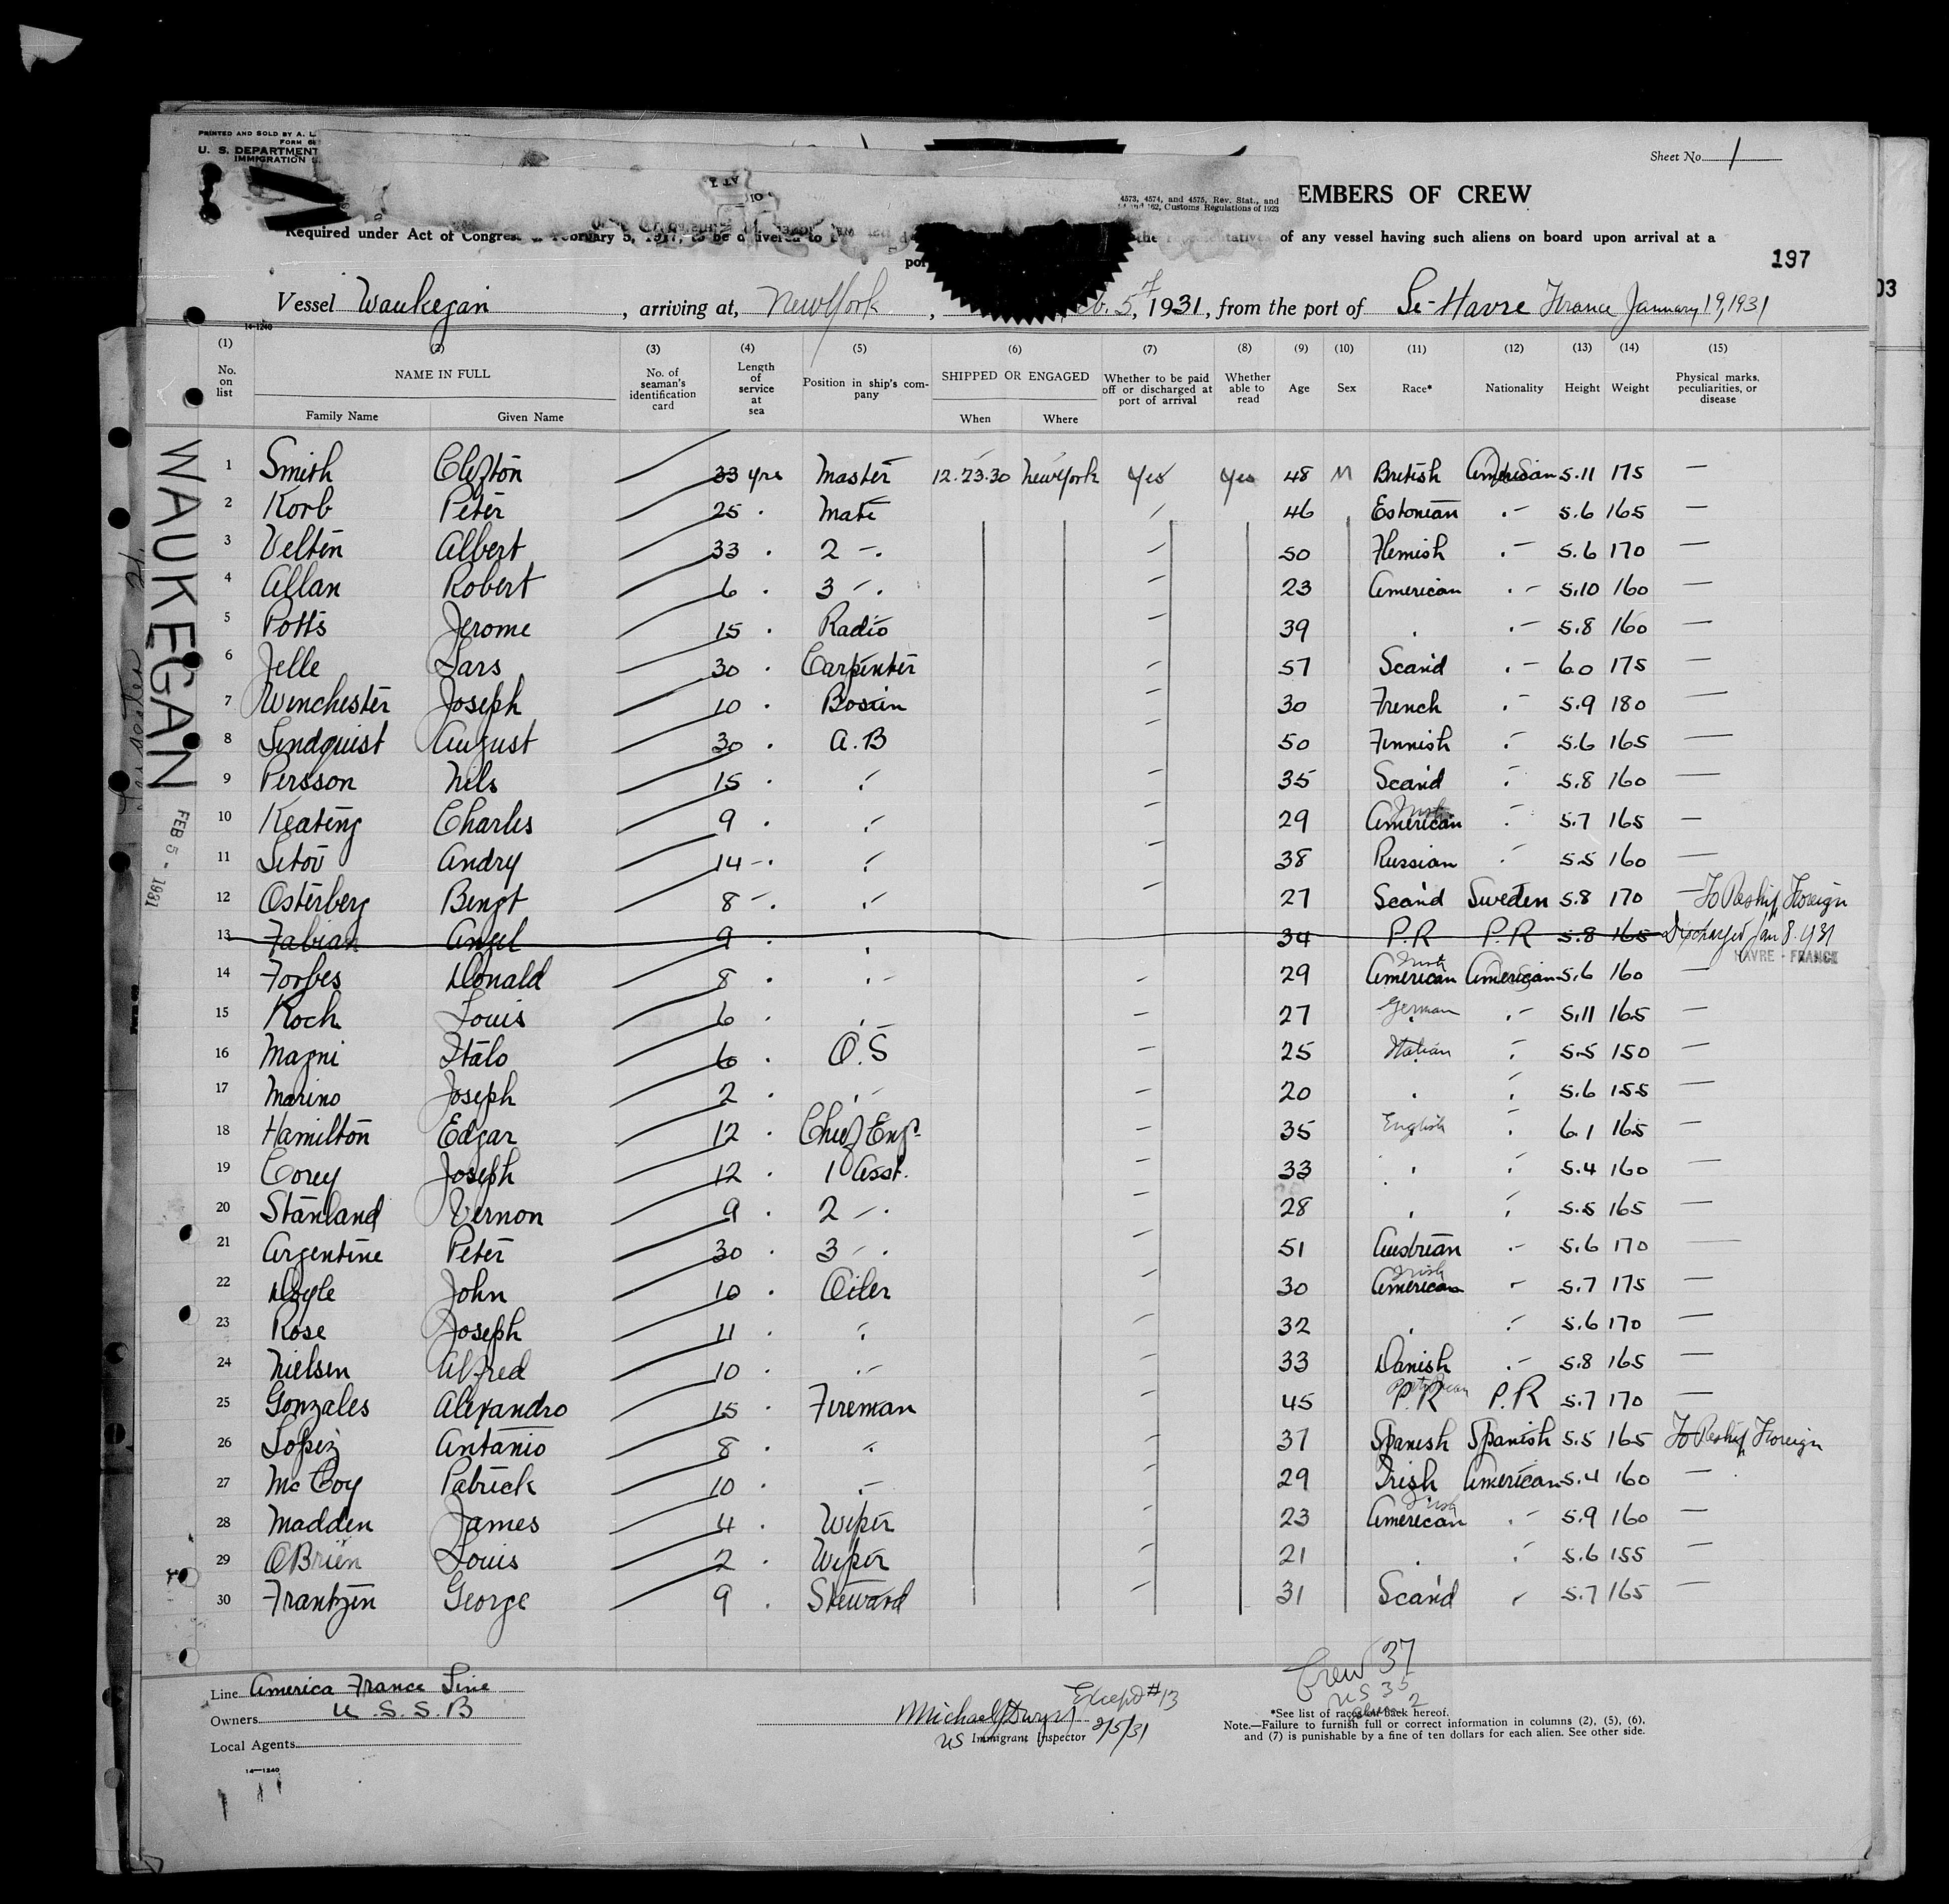 PRINTED AND SOLD BY A. L.
FORM
U. S. DEPARTMENT
IMMIGRATION
Sheet No. 1
4573, 4574, and 4575, Rev. Stat., and
162, Customs Regulations of 1923
EMBERS OF CREW
Required under Act of Congress February 5, 1917, to be delivered to the representatives of any vessel having such aliens on board upon arrival at a
197
03
Vessel Waukegan, arriving at, New York, 5, 1931, from the port of Le-Havre France January 19, 1931
14-1240
(1) (2) (3) (4) (5) (6) (7) (8) (9) (10) (11) (12) (13) (14) (15)
No. on list NAME IN FULL No. of seaman's identification card Length of service at sea Position in ship's company SHIPPED OR ENGAGED Whether to be paid off or discharged at port of arrival Whether able to read Age Sex Race* Nationality Height Weight Physical marks, peculiarities, or disease
Family Name Given Name When Where
WAUKEGAN
FEB 5 - 1931
1 Smith Clifton 33 yrs Master 12.23.30 New York Yes Yes 48 M British American 5.11 175 —
2 Korb Peter 25 . Mate 46 Estonian .- 5.6 165 —
3 Velten Albert 33 . 2 -. 50 Flemish .- 5.6 170 —
4 Allan Robert 6 . 3 -. 23 American .- 5.10 160
5 Potts Jerome 15 . Radio 39 . .- 5.8 160 —
6 Jelle Lars 30 . Carpenter 57 Scand .- 6.0 175 —
7 Winchester Joseph 10 . Bosun 30 French .- 5.9 180 —
8 Lindquist August 30 . A.B 50 Finnish .- 5.6 165 —
9 Persson Nils 15 . .- 35 Scand .- 5.8 160 —
10 Keating Charles 9 . .- 29 American Irish .- 5.7 165 —
11 Litov Andry 14 -. .- 38 Russian .- 5.5 160 —
12 Osterberg Bengt 8 -. .- 27 Scand Sweden 5.8 170 — To Reship Foreign
13 Fabian Angel 9 . . 34 P.R P.R 5.8 165 Discharged Jan 8. 1931
HAVRE - FRANCE
14 Forbes Donald 8 . .- 29 American Irish American 5.6 160 —
15 Koch Louis 6 . .- 27 German .- 5.11 165 —
16 Magni Italo 6 . O.S 25 Italian .- 5.5 150 —
17 Marino Joseph 2 . .- 20 . .- 5.6 155 —
18 Hamilton Edgar 12 . Chief Engr. 35 English .- 6.1 165 —
19 Corey Joseph 12 . 1 Asst. 33 . .- 5.4 160 —
20 Stanland Vernon 9 . 2 -. 28 . .- 5.5 165 —
21 Argentine Peter 30 . 3 -. 51 Austrian .- 5.6 170 —
22 Doyle John 10 . Oiler 30 American Irish - 5.7 175 —
23 Rose Joseph 11 . .- 32 . .- 5.6 170 —
24 Nielsen Alfred 10 . .- 33 Danish .- 5.8 165 —
25 Gonzales Alexandro 15 . Fireman 45 P.R P.R 5.7 170 —
26 Lopez Antanio 8 . .- 37 Spanish Spanish 5.5 165 To Reship Foreign
27 McCoy Patrick 10 . .- 29 Irish American 5.4 160 —
28 Madden James 4 . Wiper 23 American Irish .- 5.9 160 —
29 OBrien Louis 2 . Wiper 21 . .- 5.6 155 —
30 Frantzen George 9 . Steward 31 Scand - 5.7 165 —
Crew 37
US 35
2
Line America France Line
Owners U.S.S.B
Local Agents
14-1240
Except #13
Michael Dwyer
US Immigrant Inspector 2/5/31
*See list of races on back hereof.
Note.—Failure to furnish full or correct information in columns (2), (5), (6),
and (7) is punishable by a fine of ten dollars for each alien. See other side.